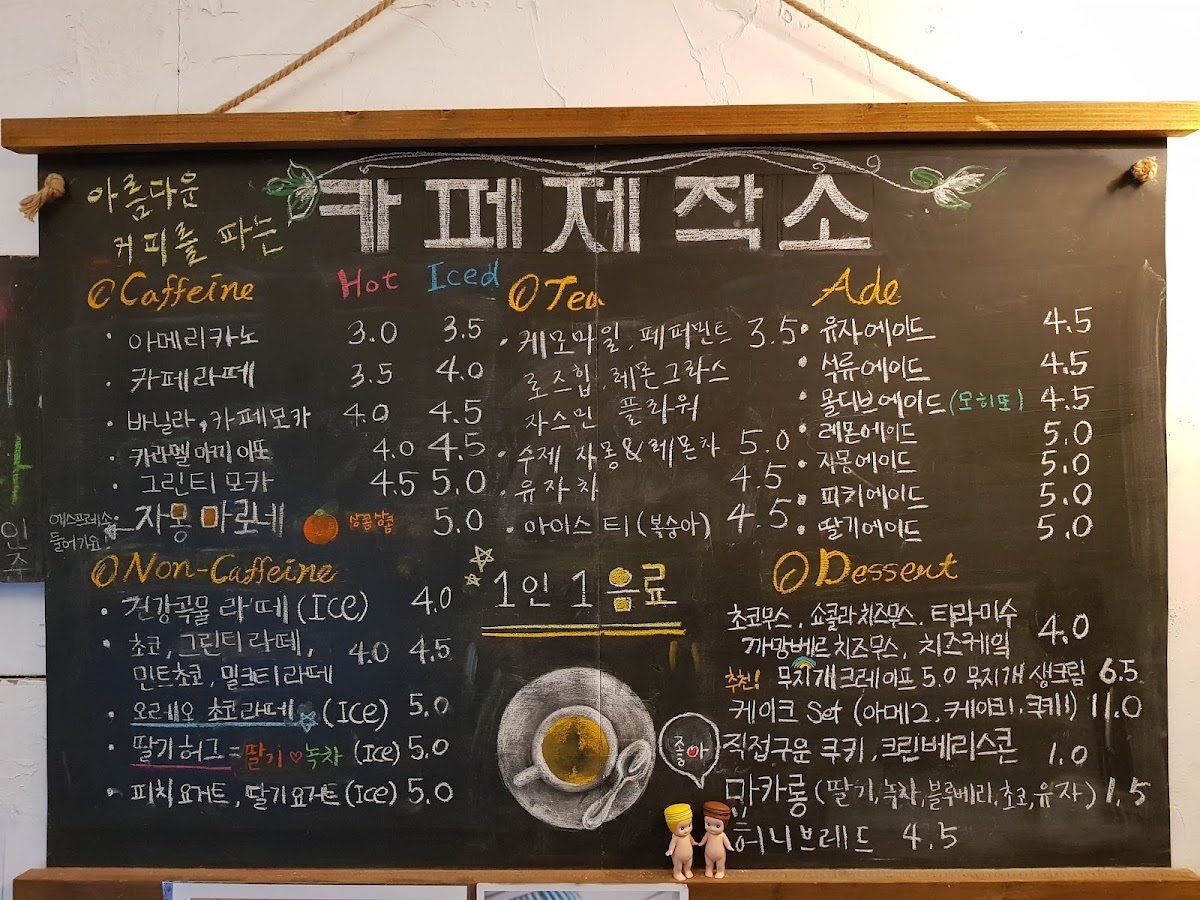 아름다운
커피를 파는
카페제작소
Caffeine Hot Iced
아메리카노 3.0 3.5
카페라떼 3.5 4.0
바닐라, 카페모카 4.0 4.5
카라멜마끼아또 4.0 4.5
그린티모카 4.5 5.0
에스프레소
들어가요!
자몽 마로네 상콤상콤 5.0
Non-Caffeine
건강곡물 라떼 (ICe) 4.0
초코, 그린티라떼, 4.0 4.5
민트초코, 밀크티라떼
오레오 초코라떼 (ICe) 5.0
딸기허그 = 딸기♡녹차 (Ice) 5.0
피치요거트, 딸기요거트 (Ice) 5.0
Tea
케모마일. 페퍼민트 3.5
로즈힙. 레몬그라스
자스민 플라워
수제 자몽&레몬차 5.0
유자차 4.5
아이스티 (복숭아) 4.5
1인 1 음료
좋아
Ade
유자에이드 4.5
석류에이드 4.5
몰디브에이드 (모히또) 4.5
레몬에이드 5.0
자몽에이드 5.0
피치에이드 5.0
딸기에이드 5.0
Dessert
초코무스. 쇼콜라치즈무스. 티라미수 4.0
까망베르 치즈무스, 치즈케익
추천! 무지개크레이프 5.0 무지개 생크림 6.5
케이크 Set (아메2, 케이크1, 쿠키1) 11.0
직접구운 쿠키, 크린베리스콘 1.0
마카롱 (딸기, 녹차, 블루베리, 초코, 유자) 1.5
허니브레드 4.5